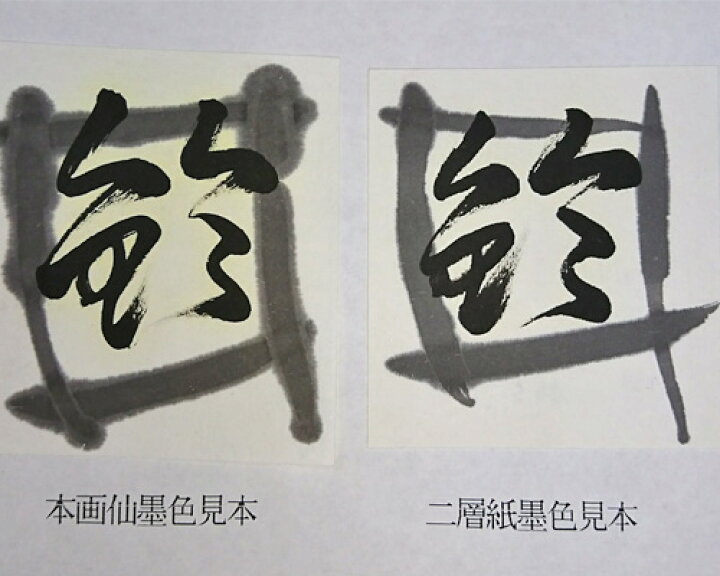 本画仙墨色見本
二層紙墨色見本